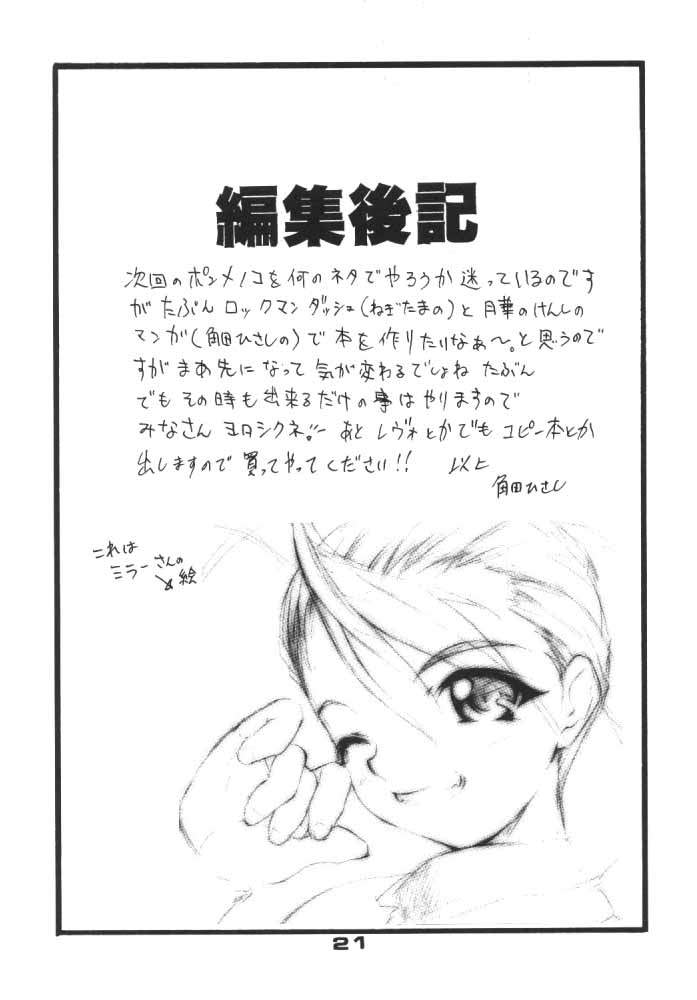 編集後記
次回のポンメノコを何のネタでやろうか迷っているのです
がたぶん ロックマンダッシュ(ねぎたまの)と月華のけんしの
マンガ(角田ひさしの)で本を作りたいなぁ〜。と思うので
すが まあ先になって気が変わるでしょね たぶん
でも その時も出来るだけの事はやりますので
みなさん ヨロシクネ!! あと レヴォとかでも コピー本とか
出しますので 買ってやってください!! 以上
角田ひさし
これは
ミラーさんの
絵
21